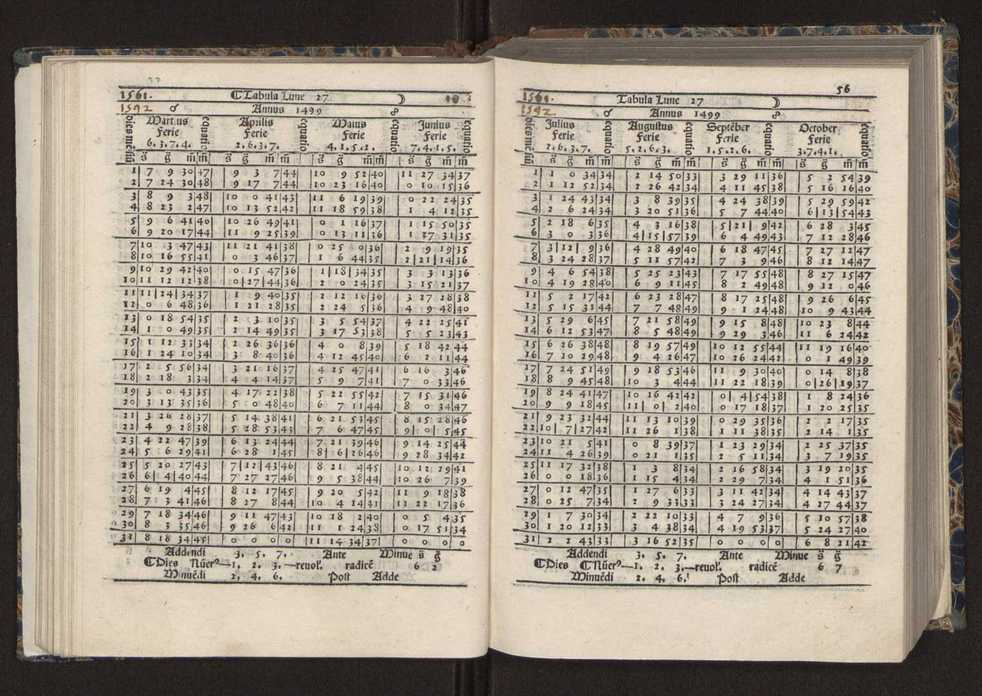 1561. ☾ Tabula Lune 27 ☽
1592 ♂ Annus 1499 ☍
Martius Aprilis Maius Junius
ferie ferie ferie ferie
6. 3. 7. 4. 2. 6. 3. 7. 4. 1. 5. 2. 7. 4. 1. 5.
s̄ ḡ m̄ m̄ s̄ ḡ m̄ m̄ s̄ ḡ m̄ m̄ s̄ ḡ m̄ m̄
1 7 9 30 47 9 3 7 44 10 9 52 40 11 27 34 37
2 7 24 30 48 9 17 7 44 10 23 16 40 0 10 15 36
3 8 9 3 48 10 0 41 43 11 6 19 39 0 22 24 35
4 8 23 2 47 10 13 52 42 11 18 59 38 1 4 12 35
5 9 6 41 46 10 26 49 41 0 1 16 37 1 15 50 35
6 9 20 17 44 11 9 25 39 0 13 11 36 1 27 31 35
7 10 3 47 43 11 21 41 38 0 25 0 36 2 9 19 35
8 10 16 55 41 0 3 46 37 1 6 44 35 2 21 14 36
9 10 29 42 40 0 15 47 36 1 18 34 35 3 3 13 36
10 11 12 12 38 0 27 44 36 2 0 24 35 3 15 21 37
11 11 24 34 37 1 9 40 35 2 12 10 36 3 27 28 38
12 0 6 48 36 1 21 28 35 2 24 5 36 4 9 48 40
13 0 18 54 35 2 3 10 35 3 5 54 37 4 22 25 41
14 1 0 49 35 2 14 49 35 3 17 53 38 5 5 23 43
15 1 12 33 34 2 26 36 36 4 0 8 39 5 18 42 44
16 1 24 10 34 3 8 40 36 4 12 45 40 6 2 11 44
17 2 5 56 34 3 21 16 37 4 25 47 41 6 16 3 46
18 2 18 3 34 4 4 14 37 5 9 7 41 7 0 33 46
19 3 0 43 35 4 17 22 38 5 22 55 42 7 15 31 46
20 3 13 35 36 5 0 48 40 6 7 11 44 8 0 34 47
21 3 26 28 37 5 14 38 41 6 21 53 45 8 15 28 46
22 4 9 28 38 5 28 53 43 7 6 47 45 9 0 5 45
23 4 22 47 39 6 13 24 44 7 21 39 46 9 14 25 44
24 5 6 29 41 6 28 1 45 8 6 26 46 9 28 34 42
25 5 20 27 43 7 12 43 46 8 21 4 45 10 12 29 41
26 6 4 40 44 7 27 27 46 9 5 38 44 10 26 7 39
27 6 19 4 45 8 12 17 45 9 20 5 42 11 9 18 38
28 7 3 41 46 8 27 8 44 10 4 14 41 11 22 17 36
29 7 18 34 46 9 11 47 43 10 18 2 40 0 5 4 35
30 8 3 35 46 9 26 6 42 11 1 24 38 0 17 51 34
31 8 18 34 45 0 0 0 0 11 14 34 37 0 0 0 0
Addendi 3. 5. 7. Ante Minue s̄ ḡ
☾ Dies Nūerꝰ—1. 2. 3.—reuol. radicē 6 2
Minuēdi 2. 4. 6. Post Adde
56
1561. Tabula Lune 27 ☽
1592 ♂ Annus 1499 ☍
Julius Augustus Septēber October
ferie ferie ferie ferie
2. 6. 3. 7. 5. 2. 6. 3. 1. 5. 2. 6. 3. 7. 4. 1.
s̄ ḡ m̄ m̄ s̄ ḡ m̄ m̄ s̄ ḡ m̄ m̄ s̄ ḡ m̄ m̄
1 1 0 34 34 2 14 50 33 3 29 11 36 5 2 54 39
2 1 12 52 34 2 26 42 34 4 11 45 38 5 16 16 40
3 1 24 43 34 3 8 39 35 4 24 38 39 5 29 59 42
4 2 6 24 34 3 20 51 36 5 7 44 40 6 13 54 43
5 2 18 6 35 4 3 16 38 5 21 9 42 6 28 3 45
6 3 0 3 36 4 15 57 39 6 4 49 43 7 12 28 46
7 3 12 9 36 4 28 49 40 6 18 47 45 7 27 12 47
8 3 24 28 37 5 11 57 42 7 3 9 46 8 12 14 47
9 4 6 54 38 5 25 23 43 7 17 55 48 8 27 15 47
10 4 19 28 40 6 9 11 45 8 2 49 48 9 12 0 46
11 5 2 17 42 6 23 28 47 8 17 25 48 9 26 6 45
12 5 15 31 44 7 7 48 49 9 1 24 48 10 9 43 44
13 5 29 6 45 7 21 58 49 9 15 8 48 10 23 8 44
14 6 12 53 47 8 5 48 49 9 29 3 46 11 6 24 42
15 6 26 38 48 8 19 57 49 10 12 55 44 11 19 16 40
16 7 10 29 48 9 4 26 47 10 26 24 42 0 1 49 39
17 7 24 51 49 9 18 53 46 11 9 30 40 0 14 8 38
18 8 9 45 48 10 3 4 44 11 22 18 39 0 26 19 37
19 8 24 41 47 10 16 42 42 0 4 54 38 1 8 24 36
20 9 9 18 45 11 0 2 40 0 17 18 37 1 20 25 35
21 9 23 32 44 11 13 10 39 0 29 35 36 2 2 17 35
22 10 7 27 42 11 26 1 38 1 11 38 35 2 14 1 35
23 10 21 5 41 0 8 39 37 1 23 29 34 2 25 37 35
24 11 4 26 39 0 21 1 35 2 5 11 34 3 7 19 35
25 11 17 32 38 1 3 8 34 2 16 58 34 3 19 10 35
26 0 0 18 36 1 15 4 34 2 29 7 34 4 1 51 36
27 0 12 47 35 1 27 6 33 3 11 42 34 4 14 43 37
28 0 25 7 34 2 9 33 33 3 24 27 34 4 27 44 37
29 1 7 30 34 2 22 10 33 4 7 9 36 5 10 57 38
30 1 20 12 33 3 4 38 34 4 19 53 37 5 24 27 40
31 2 2 43 33 3 16 52 35 0 0 0 0 6 8 21 42
Addendi 3. 5. 7. Ante Minue s̄ ḡ
☾ Dies ☾ Nūerꝰ—1. 2. 3.—reuol. radicē 6 7
Minuēdi 2. 4. 6. Post Adde